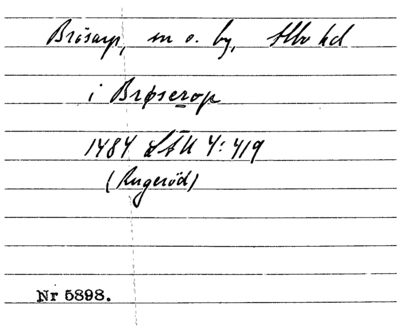 Brösarp, sn o. by, Albo hd
i Brøserop
1484 LÄU 4:419
(Rugeröd)
Nr 5898.